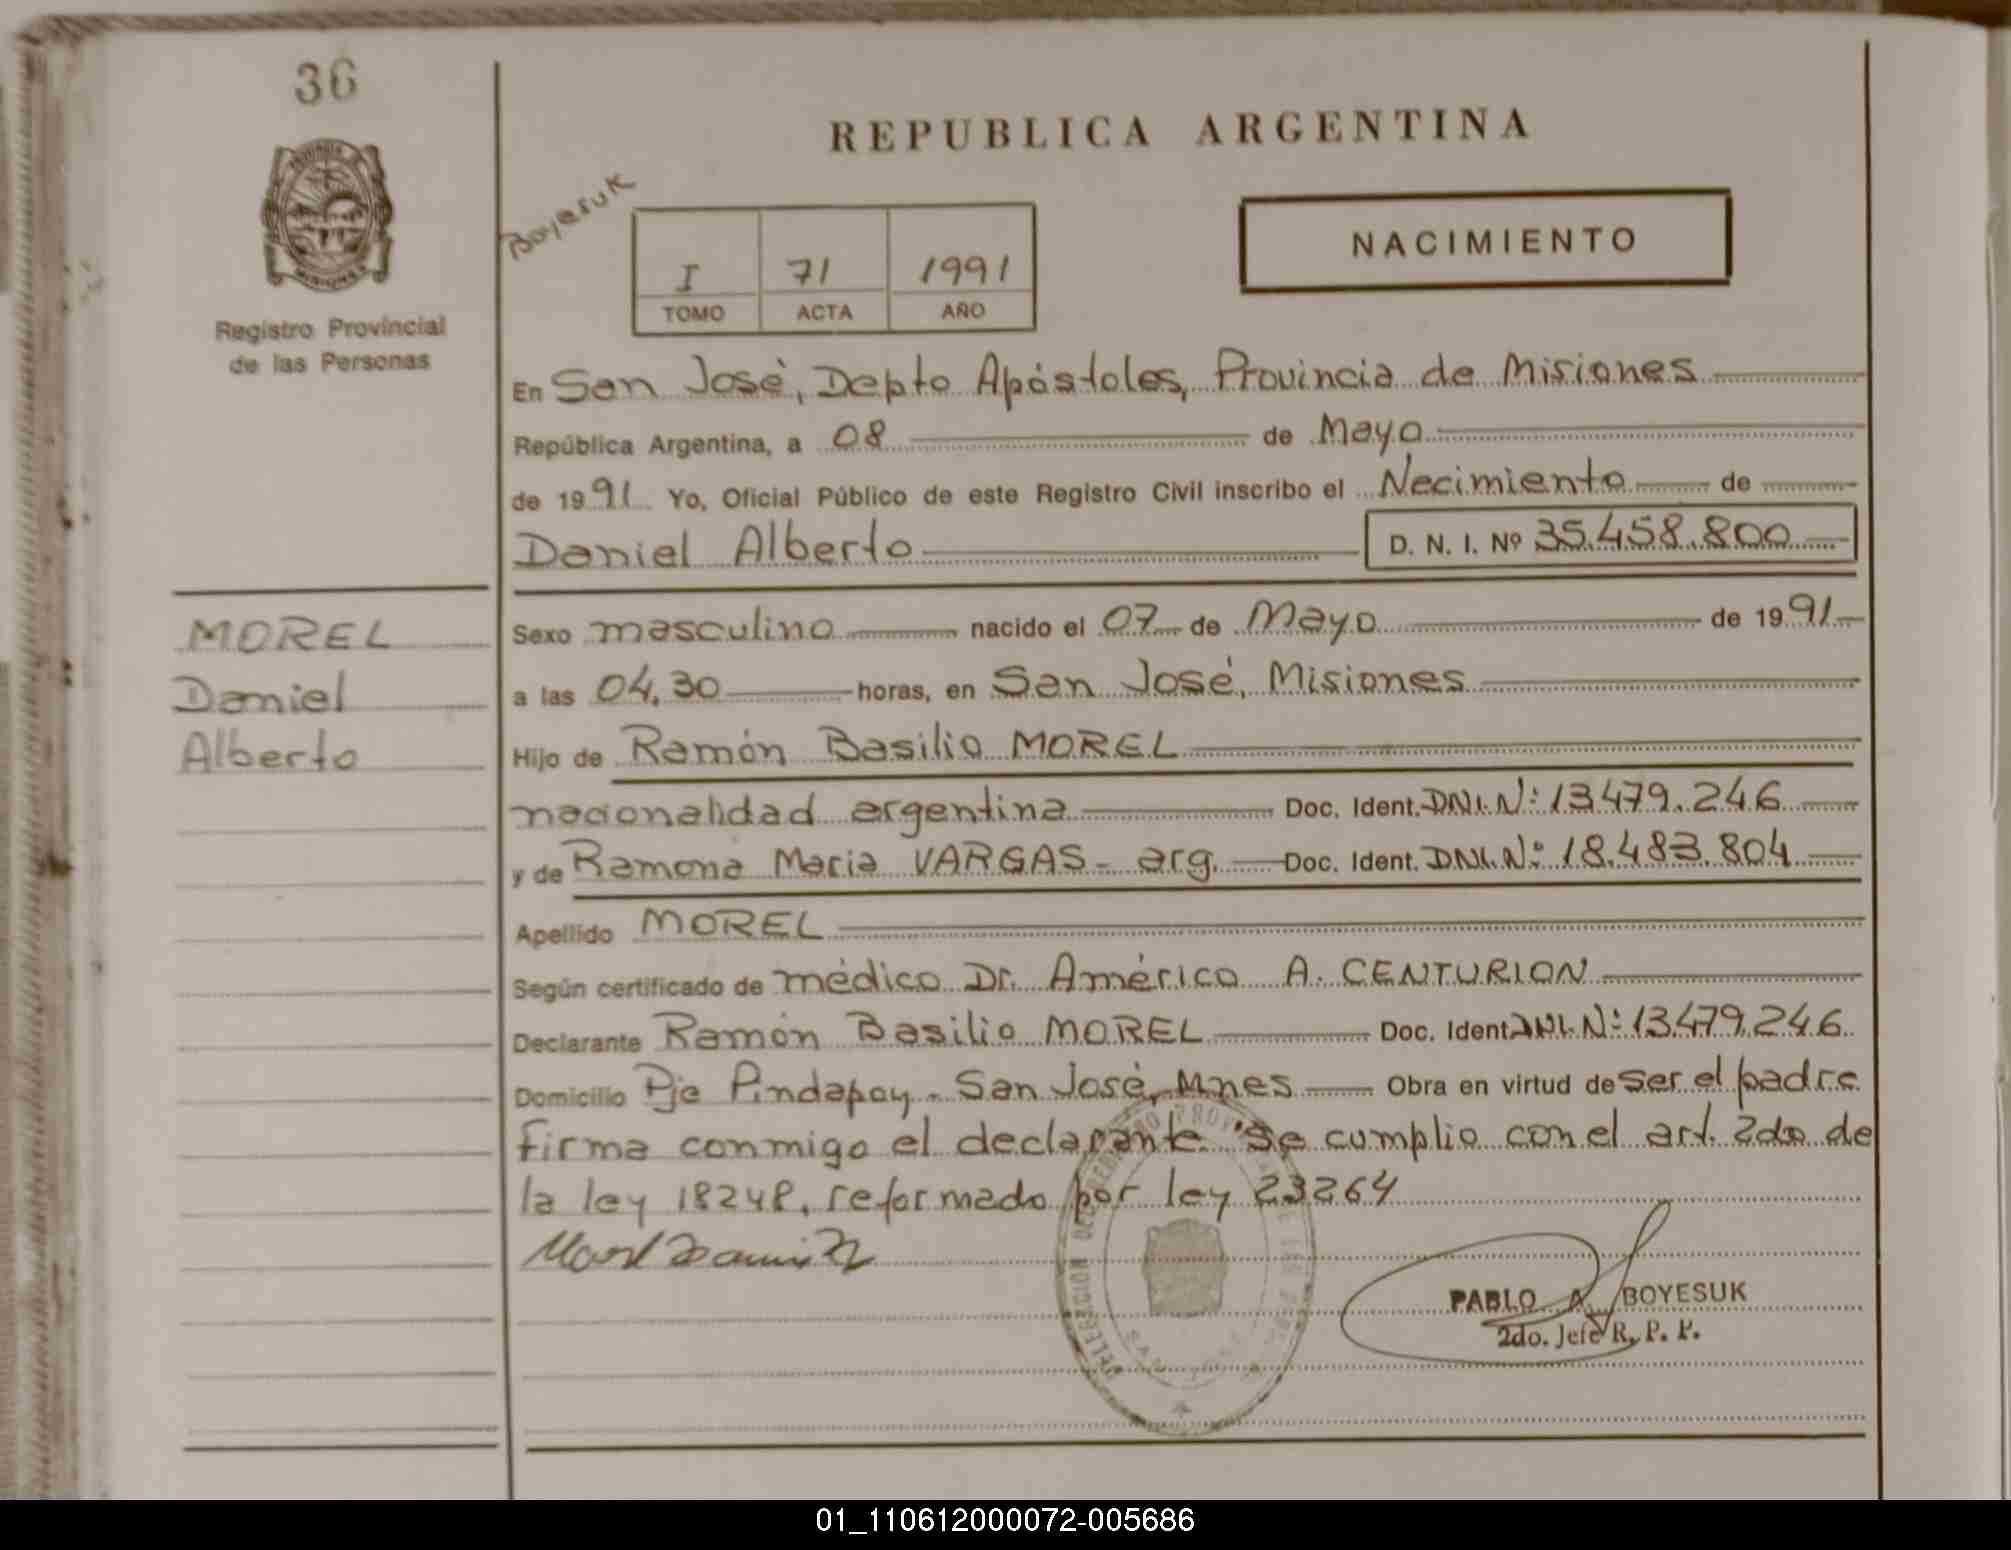 36
REPUBLICA ARGENTINA
Boyesuk
NACIMIENTO
I 71 1991
TOMO ACTA AÑO
PROVINCIA DE
MISIONES
Registro Provincial
de las Personas
En San José, Depto Apóstoles, Provincia de Misiones
República Argentina, a 08 de Mayo
de 1991 Yo, Oficial Público de este Registro Civil inscribo el Nacimiento de
Daniel Alberto D. N. I. Nº 35.458.800
MOREL
Daniel
Alberto
Sexo masculino nacido el 07 de Mayo de 1991
a las 04,30 horas, en San José, Misiones
Hijo de Ramón Basilio MOREL
nacionalidad argentina Doc. Ident. DNI. Nº 13.479.246
y de Ramona Maria VARGAS - arg. Doc. Ident. DNI. Nº 18.483.804
Apellido MOREL
Según certificado de médico Dr. Américo A. CENTURION
Declarante Ramón Basilio MOREL Doc. Ident. DNI. Nº 13.479.246
Domicilio Pje Pindapoy - San José, Mnes Obra en virtud de ser el padre
firma conmigo el declarante. Se cumplio con el art. 2do de
la ley 18248, reformado por ley 23264
PABLO A. BOYESUK
2do. Jefe R. P. P.
SAN JOSE
01_110612000072-005686